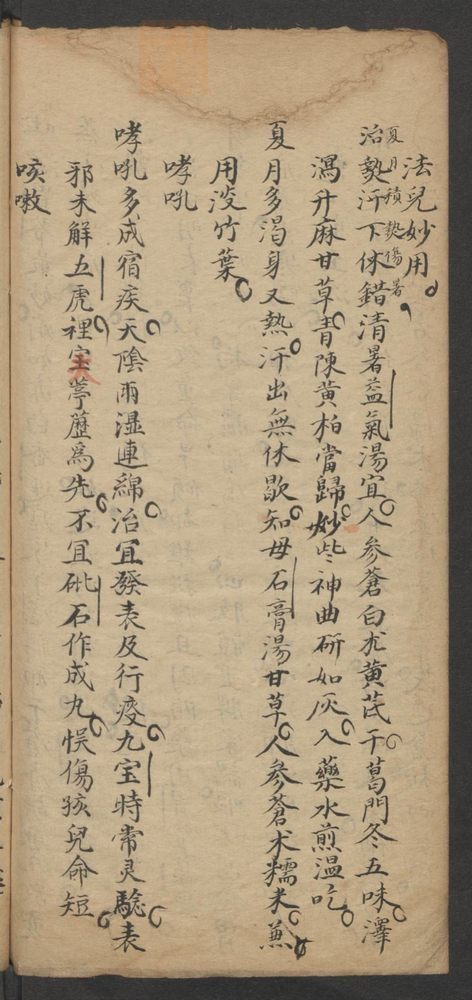 法兒妙用
夏月積熱傷暑
治熱汗下休錯清暑益氣湯宜人參蒼白朮黃芪干葛門冬五味澤
瀉升麻甘草青陳黃柏當歸妙些神曲研如灰入藥水煎温吃
夏月多渴身又熱汗出無休歇知母石膏湯甘草人參蒼术糯米兼
用淡竹葉
哮吼
哮吼多成宿疾天陰雨湿連綿治宜發表及行痰九宝時常灵驗表
邪未解五虎裡宝葶藶為先不宜砒石作成丸悞傷孩兒命短
咳嗽